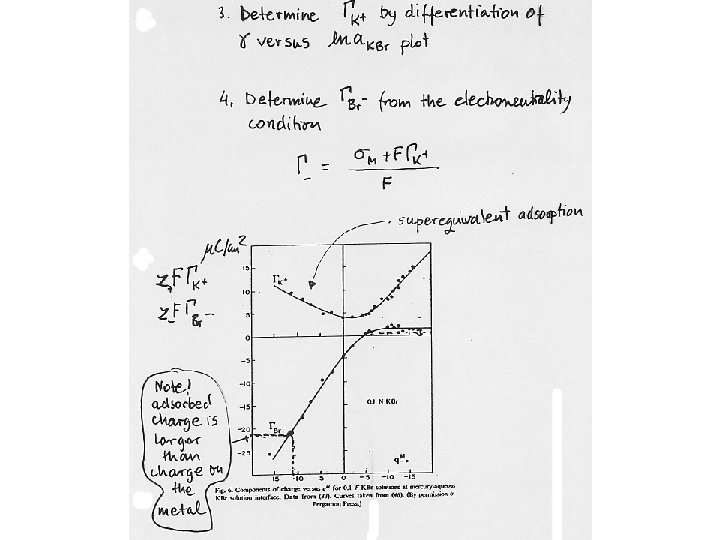 3. Determine ΓK+ by differentiation of
γ versus ln aKBr plot
4. Determine ΓBr- from the electroneutrality
condition
Γ- = σM + FΓK+
F
superequivalent adsorption
μC/cm2
z+FΓK+
z-FΓBr-
15
10
5
0
-5
-10
-15
-20
-25
ΓK+
0.1 N KBr
ΓBr-
qM
15 10 5 0 -5 -10 -15
Note!
adsorbed
charge is
larger
than
charge on
the
metal
Fig. 6. Components of charge versus qM for 0.1 F KBr solutions at mercury/aqueous
KBr solution interface. Data from (). Curves taken from (). (By permission o
Pergamon Press.)